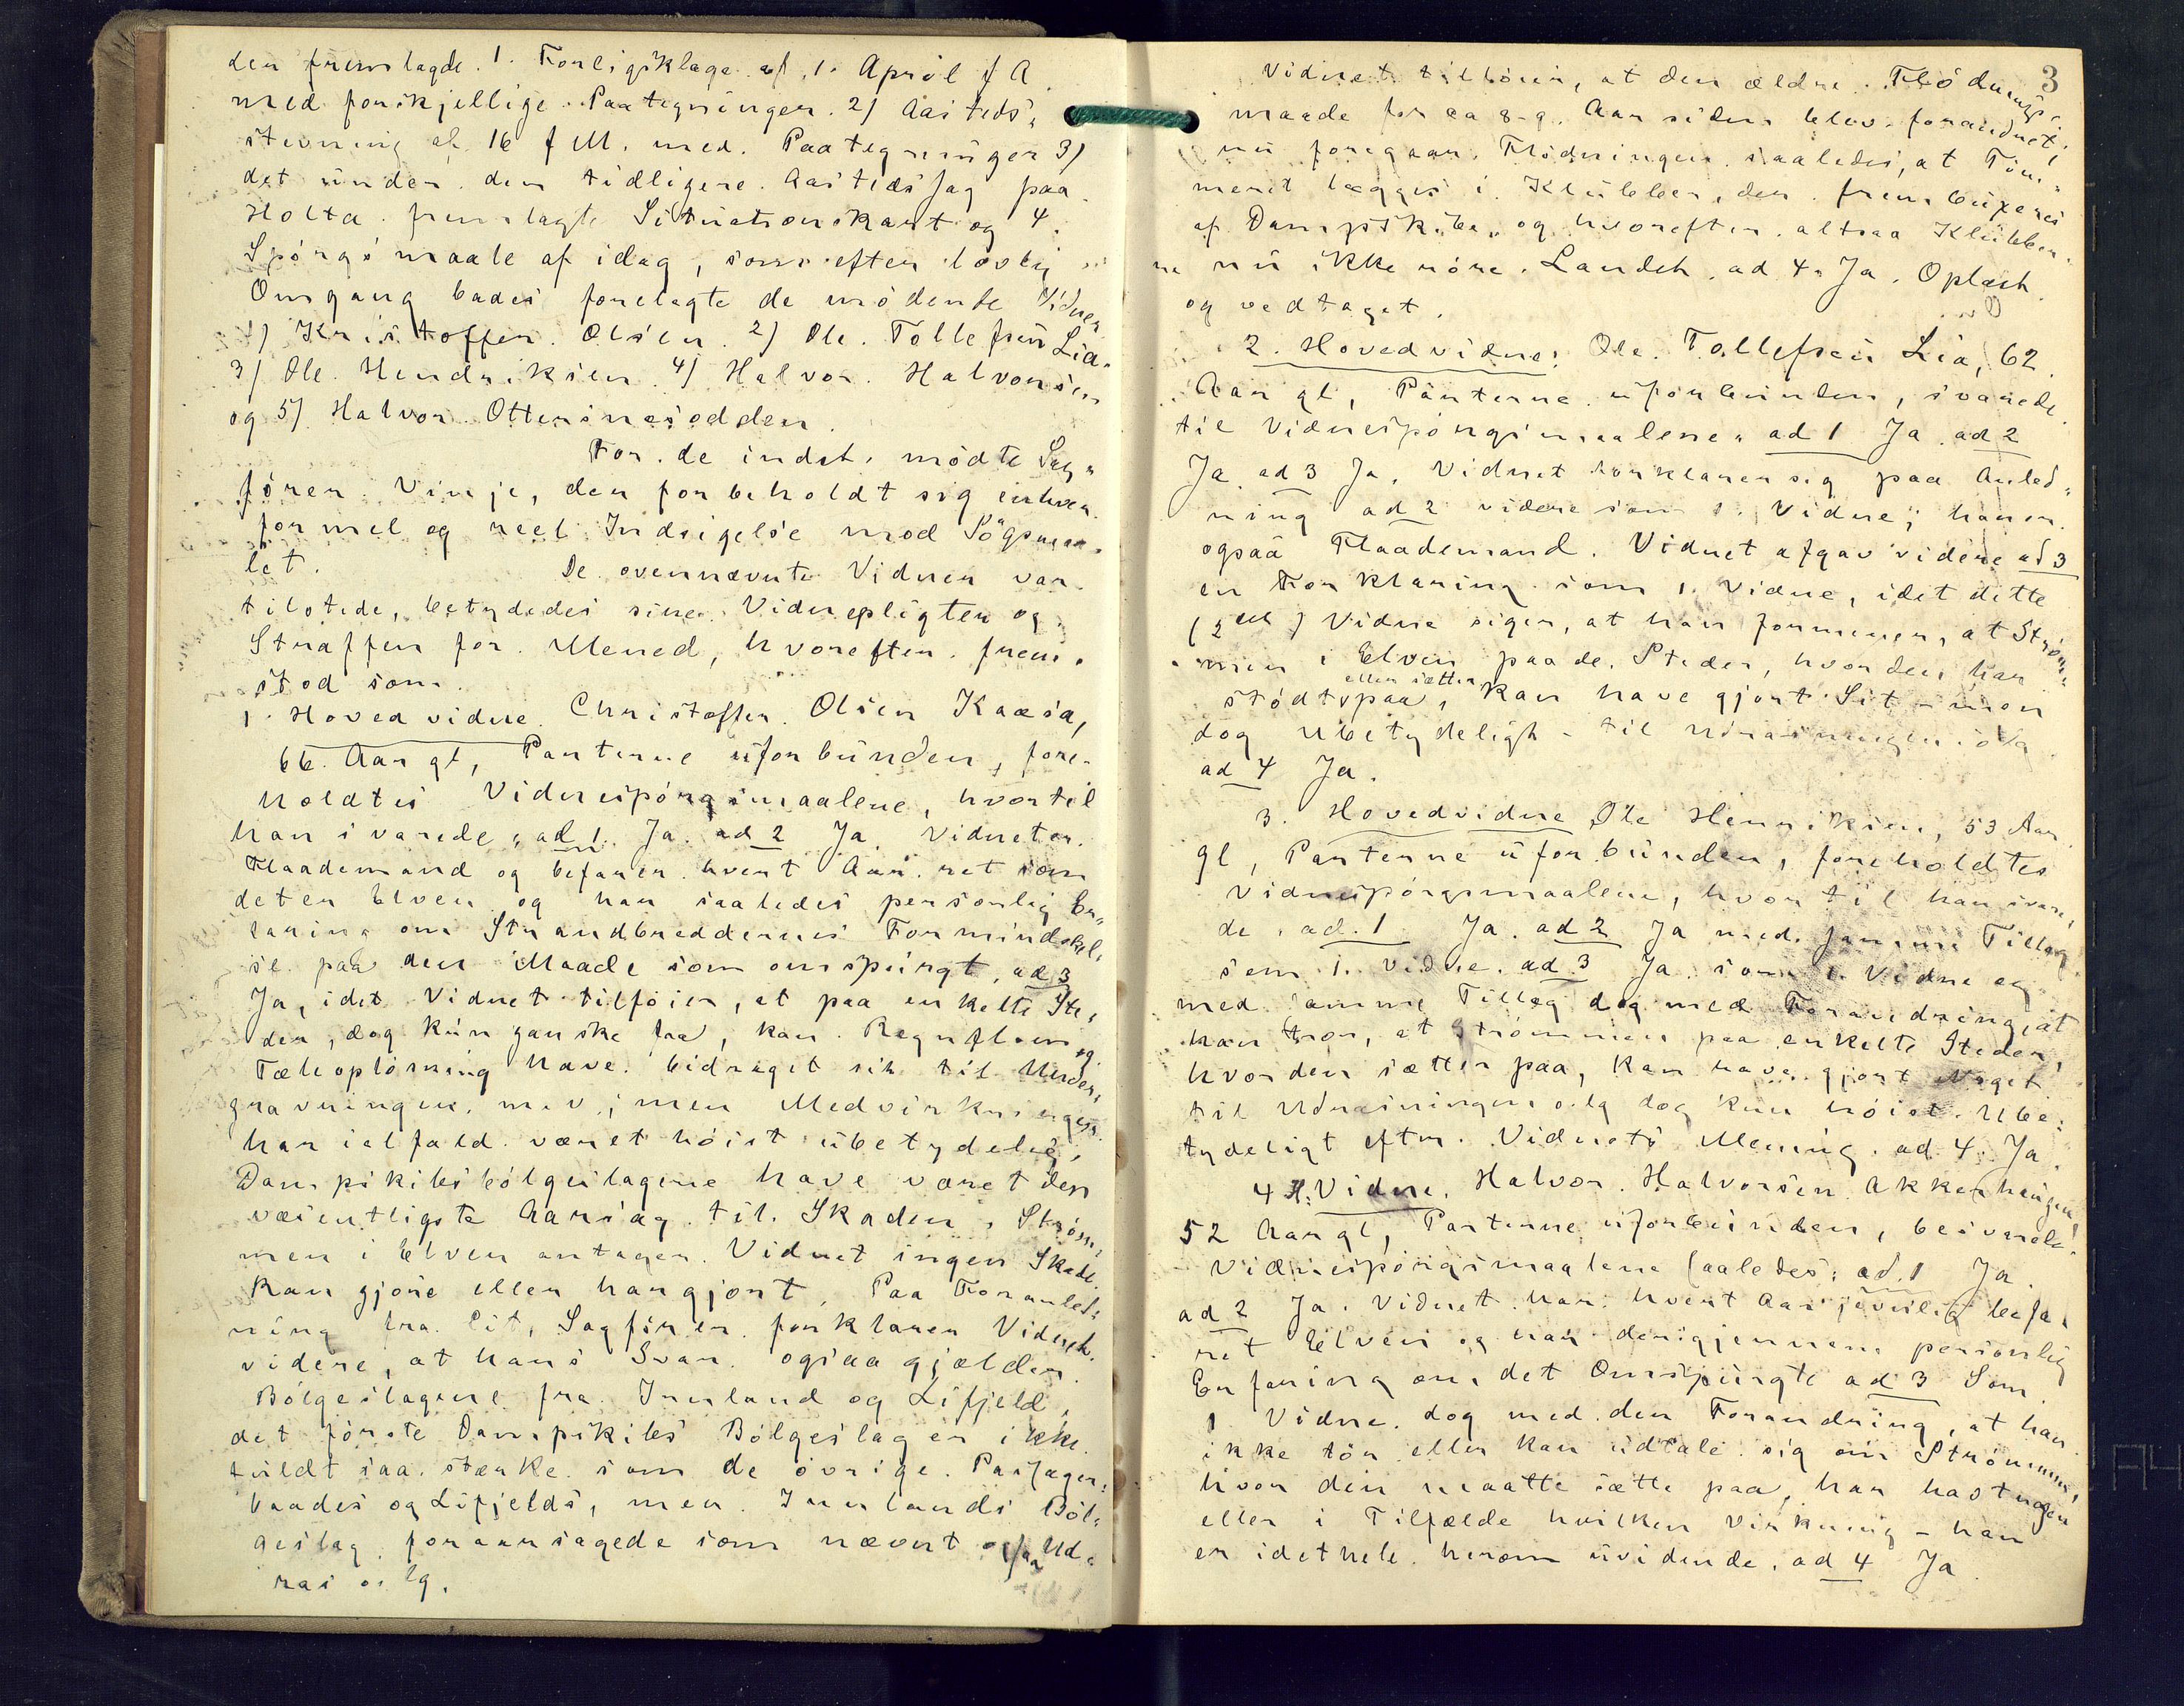 den fremlagde. 1. Forligsklage af 1. April f A
med forskjellige Paategninger. 2) Aasteds„
stevning af 16 f M. med Paategninger 3)
det under den tidligere Aastedssag paa
Holta fremlagte Situationskart og 4.
Spörgsmaale af idag, som efter lovlig
Omgang bades forelagte de mödende Vidner
1) Kristoffer Olsen. 2) Ole Tollefsen Lia.
3) Ole Hendriksen 4) Halvor Halvorsen
og 5) Halvor Ottersnesodden.
For de indst. mödte Sag„
förer Vinje, der forbeholdt sig enhver
formel og reel Indsigelse mod Sögsmaa„
let. De ovennævnte Vidner var
tilstede, betydedes sine Vidnepligter og
Straffen for Mened, hvorefter frem„
stod som
1. Hovedvidne Christoffer Olsen Kaasa,
66 Aar gl, Parterne uforbunden, fore„
holdtes Vidnespörgsmaalene, hvortil
han svarede, ad 1 Ja. ad 2 Ja. Vidnet er
Flaademand og befarer hvert Aar ret som
det er Elven og har saaledes personlig Er„
faring om Strandbreddernes Formindskel„
se paa den Maade som omspurgt, ad 3
Ja, idet Vidnet tilföier, at paa enkelte Ste„
der, dog kun ganske faa, kan Regnflom og
Tæleoplösning have bidraget sit til Under„
gravningen m. v; men Medvirkningen
har ialfald været höist ubetydelig,
Dampskibsbölgeslagene have været den
væsentligste Aarsag til Skaden. Ström„
men i Elven antager Vidnet ingen Skade
kan gjöre eller har gjort. Paa Foranled„
ning fra Cit, Sagförer forklarer Vidnet
videre, at hans Svar ogsaa gjælder
Bölgeslagene fra Inland og Lifjeld,
det förste Dampskibs Bölgeslag er ikke
fuldt saa stærke som de övrige Passager„
baades og Lifjelds, men Inlands Böl„
geslag foraarsagede som nævnt ogsaa Ud„
ras o. lg.
3
Vidnet tilföier, at den ældre Flödnings„
maade for ca 8-9 Aar siden blev forandret;
nu foregaar Flödningen saaledes, at Töm„
meret lægges i Klubber, der frembuxeres
af Dampskibe, og hvorefter altsaa Klubber„
ne nu ikke röre Landet. ad 4. Ja. Oplæst
og vedtaget.
2. Hovedvidne: Ole Tollefsen Lia, 62
Aar gl, Parterne uforbunden, svarede
til Vidnespörgsmaalene. ad 1 Ja ad 2
Ja ad 3 Ja. Vidnet forklarer sig paa Anled„
ning ad 2 videre som 1. Vidne; han er
ogsaa Flaademand. Vidnet afgav videre ad 3
en Forklaring som 1. Vidne, idet dette
(2det) Vidne siger, at han formener, at Ström„
men i Elven paa de Steder, hvor den har
eller sætter
stödt paa, kan have gjort Sit - men
dog ubetydeligt - til Udrasningen o lg
ad 4 Ja.
3. Hovedvidne Ole Henriksen, 53 Aar
gl, Parterne uforbunden, foreholdtes
Vidnespörgsmaalene, hvortil han svare„
de, ad. 1 Ja. ad 2 Ja med samme Tillæg
som 1. Vidne. ad 3 Ja som 1. Vidne og
med samme Tillæg dog med Forandring, at
han tror, at Strömmen paa enkelte Steder,
hvor den sætter paa, kan have gjort Noget
til Udrasningen o. lg dog kun höist Ube„
tydeligt efter Vidnets Mening. ad 4. Ja.
4 H. Vidne. Halvor Halvorsen Akkerhaugen
52 Aar gl, Parterne uforbunden, besvarede
Vidnespörgsmaalene saaledes: ad. 1 Ja.
ad 2 Ja. Vidnet har hvert Aar jevnlig befa„
ret Elven og har derigjennem personlig
Erfaring om det Omspurgte ad 3 Som
1 Vidne dog med den Forandring, at han
ikke tör eller kan udtale sig om Strömmen,
hvor den maatte sætte paa, har havt nogen
eller i Tilfælde hvilken Virkning - han
er idethele herom uvidende. ad 4 Ja